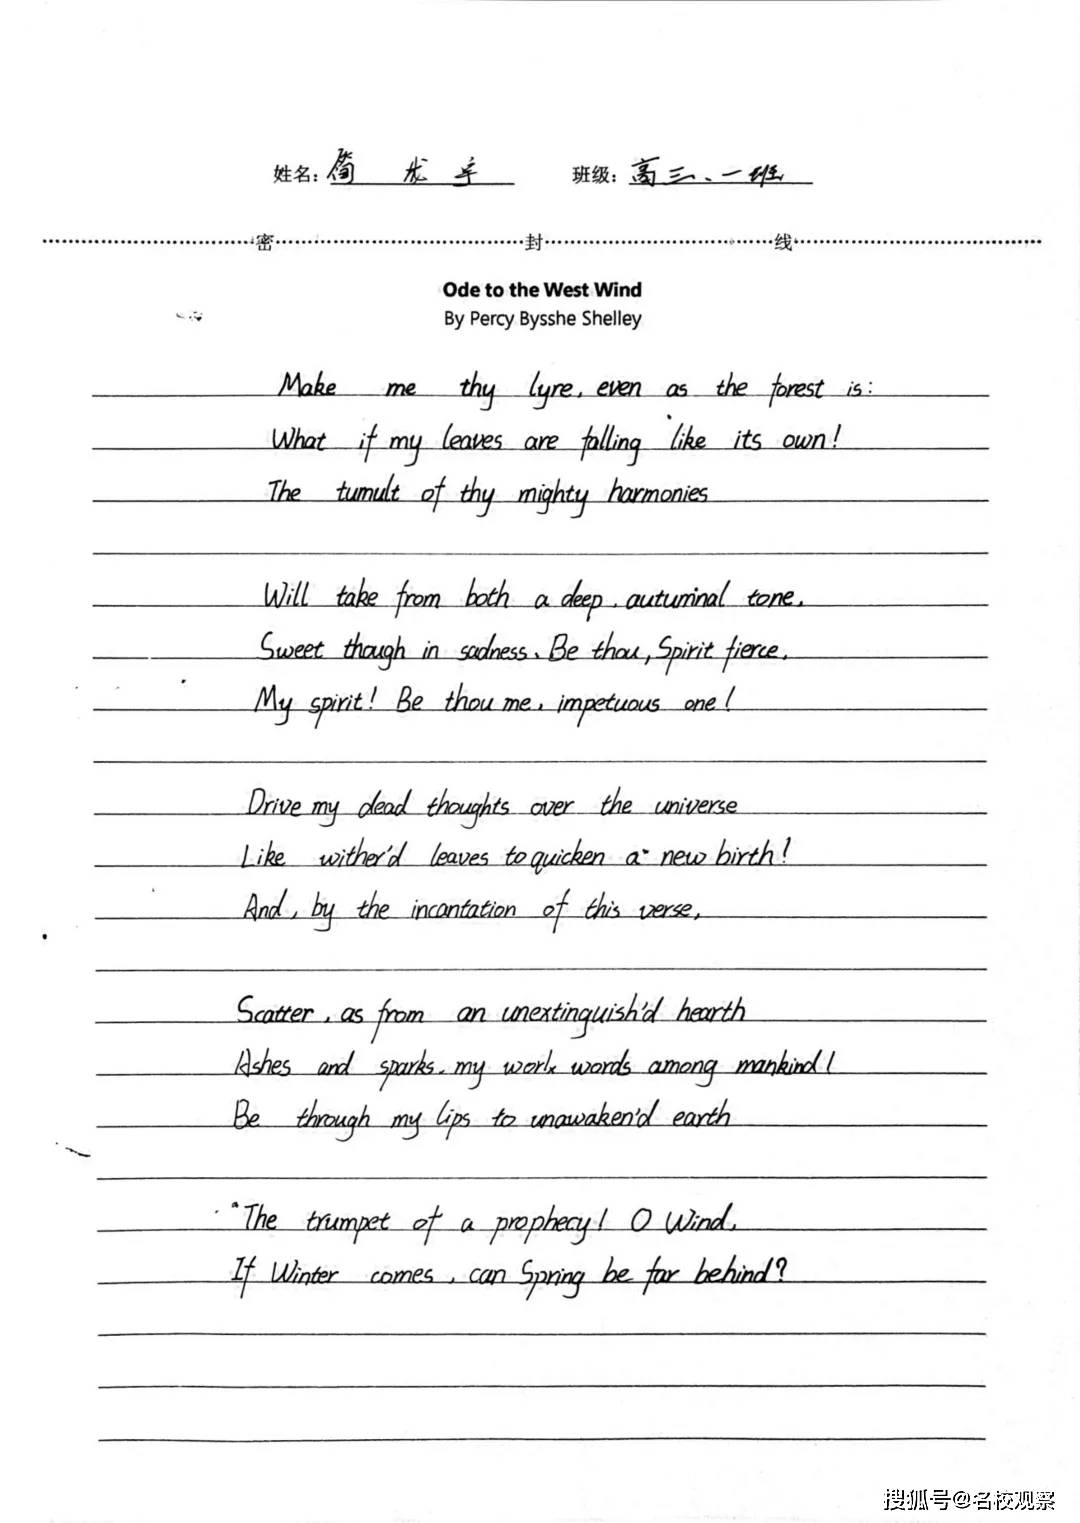 姓名: 龙宇
班级: 高三、一班
密 封 线
Ode to the West Wind
By Percy Bysshe Shelley
Make me thy lyre, even as the forest is:
What if my leaves are falling like its own!
The tumult of thy mighty harmonies
Will take from both a deep, autumnal tone,
Sweet though in sadness. Be thou, Spirit fierce,
My spirit! Be thou me, impetuous one!
Drive my dead thoughts over the universe
Like wither'd leaves to quicken a new birth!
And, by the incantation of this verse,
Scatter, as from an unextinguish'd hearth
Ashes and sparks, my work words among mankind!
Be through my lips to unawaken'd earth
"The trumpet of a prophecy! O Wind,
If Winter comes, can Spring be far behind?
搜狐号@名校观察